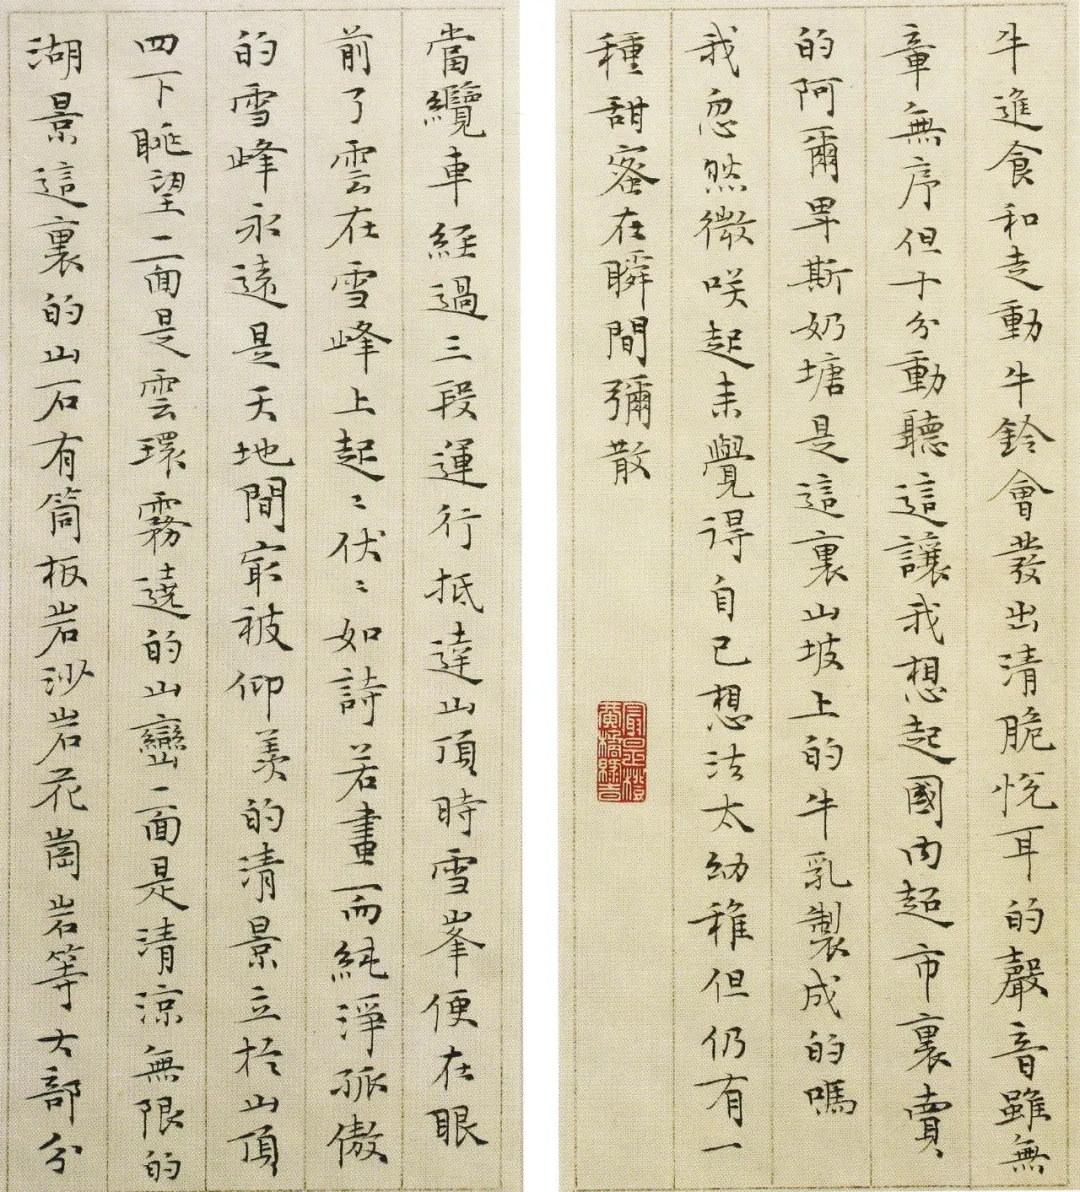 牛進食和走動牛鈴會發出清脆悅耳的聲音雖無
章無序但十分動聽這讓我想起國內超市裏賣
的阿爾卑斯奶塘是這裏山坡上的牛乳製成的嗎
我忽然微咲起来覺得自己想法太幼稚但仍有一
種甜蜜在瞬間彌散
最是橙
黃橘綠時
當纜車經過三段運行抵達山頂時雪峯便在眼
前了雲在雪峰上起〻伏〻如詩若畫而純淨孤傲
的雪峰永遠是天地間㝡被仰羡的清景立於山頂
四下眺望二面是雲環霧遶的山巒一面是清涼無限的
湖景這裏的山石有筒板岩沙岩花崗岩等大部分